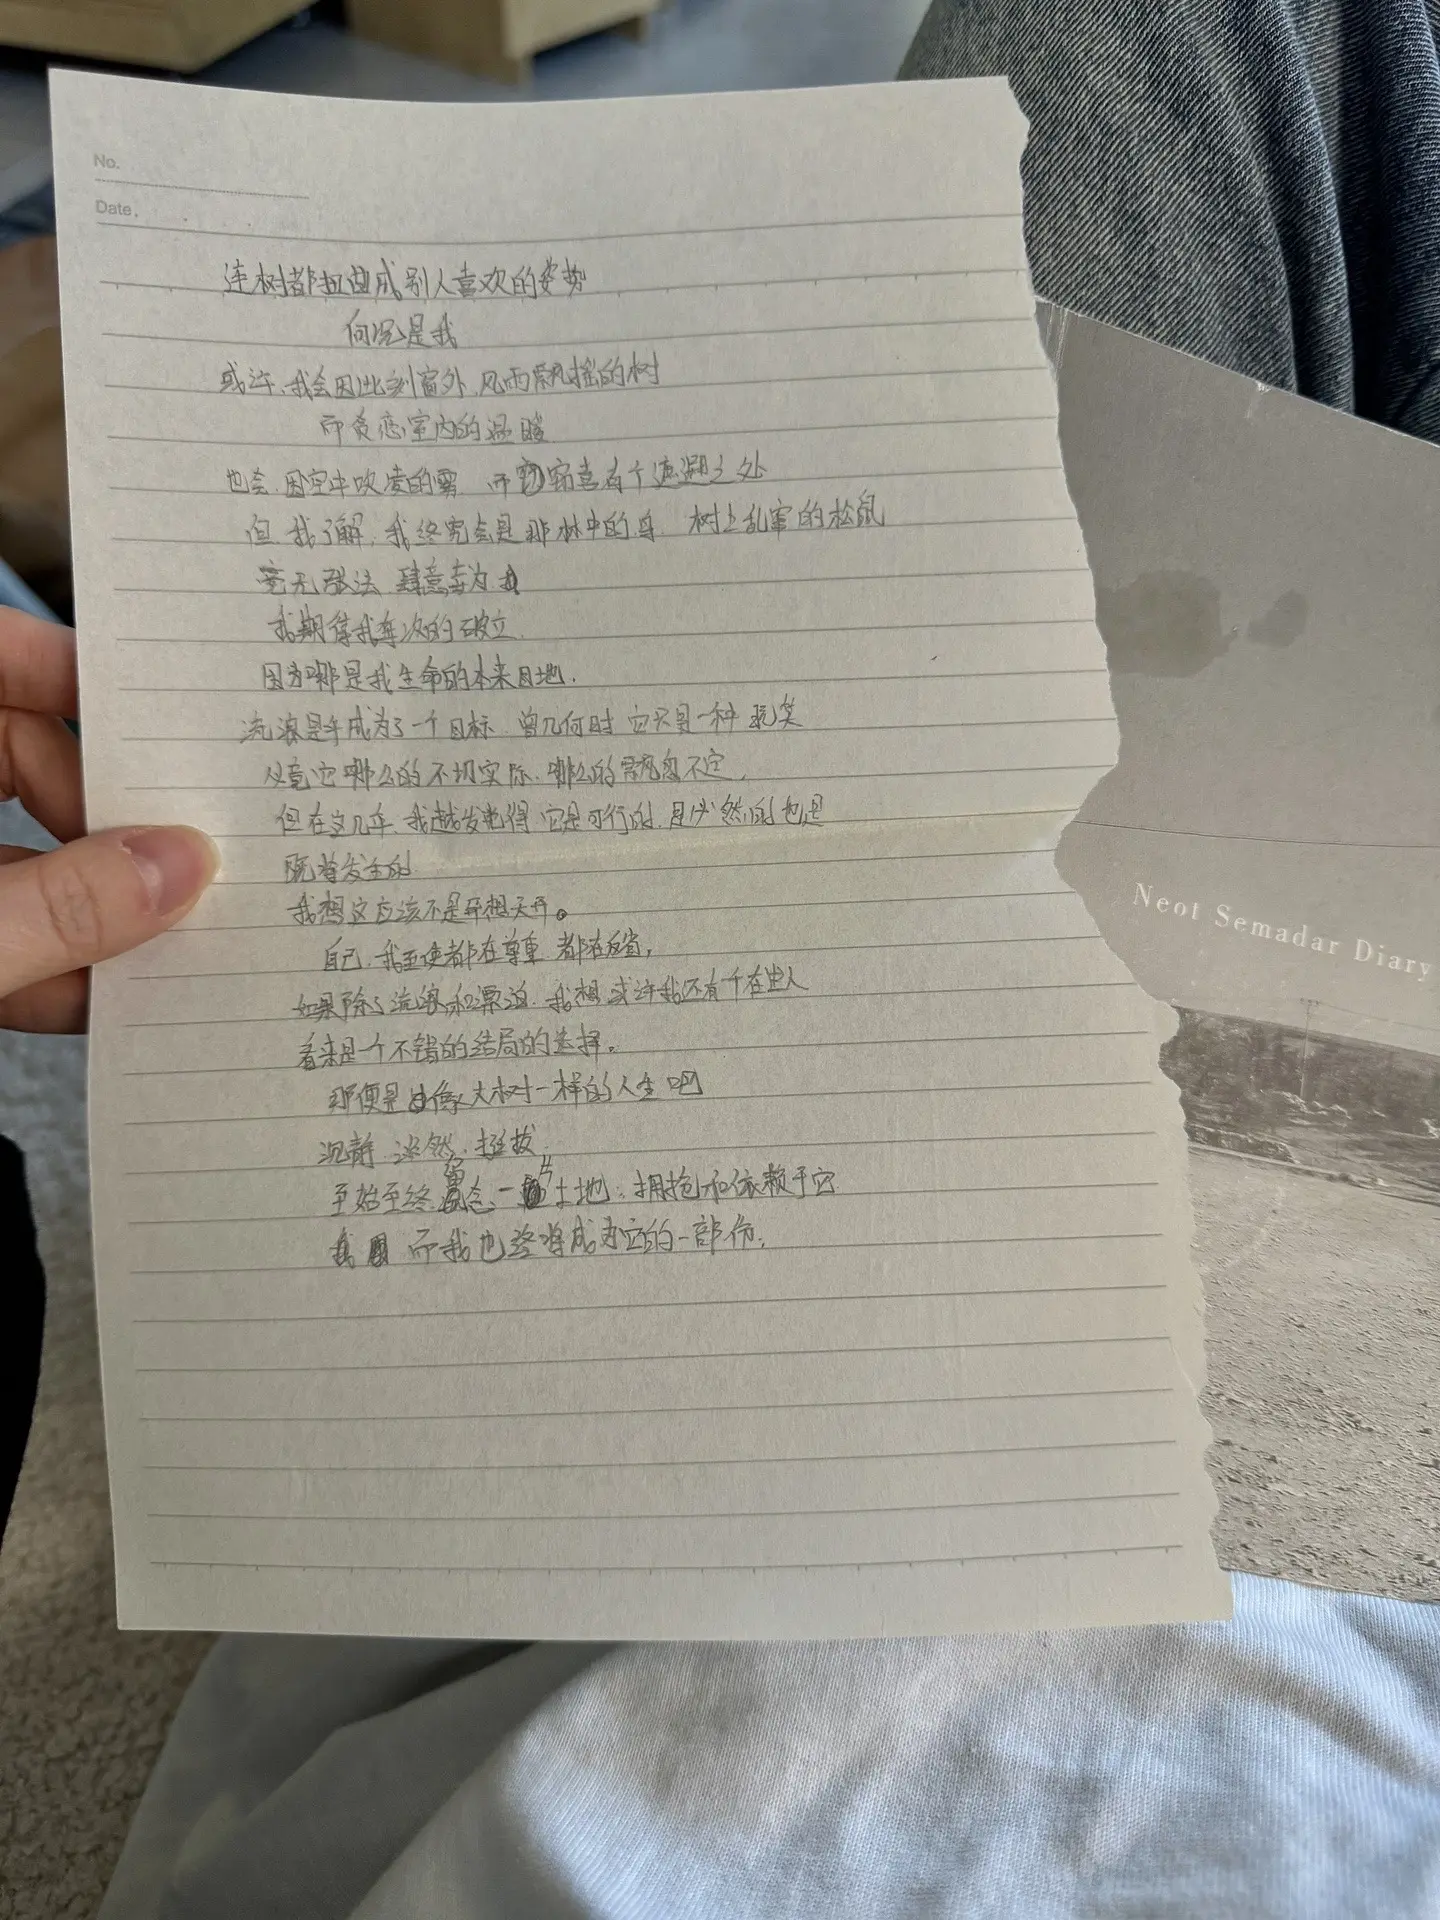 No.
Date.
连树都扭曲成别人喜欢的姿势
何况是我
或许、我会因此刻窗外、风雨飘摇的树
而贪恋室内的温暖
也会、因空中吹凌的雪 而窃喜有个遮避之处
但、我了解、我终究会是那林中的鸟、树上乱窜的松鼠
毫无张法 肆意妄为
我期待我每次的破立
因为哪是我生命的本来目地.
流浪是早成为了一个目标、曾几何时 它只是一种 玩笑
必竟它哪么的不切实际、哪么的飘忽不定,
但在这几年、我越发觉得、它是可行的、是必然的 也是
既将发生的
我想这应该不是异想天开。
自己、我至使都在尊重 都在反省,
如果除了流浪和漂泊、我想 或许我还有个在世人
看来是个不错的结局的选择。
那便是 像大树一样的人生吧
沉静、淡然、挺拔,
至始至终 一片土地, 拥抱和依赖于它
而我也终将成为它的一部份,
Neot Semadar Diary